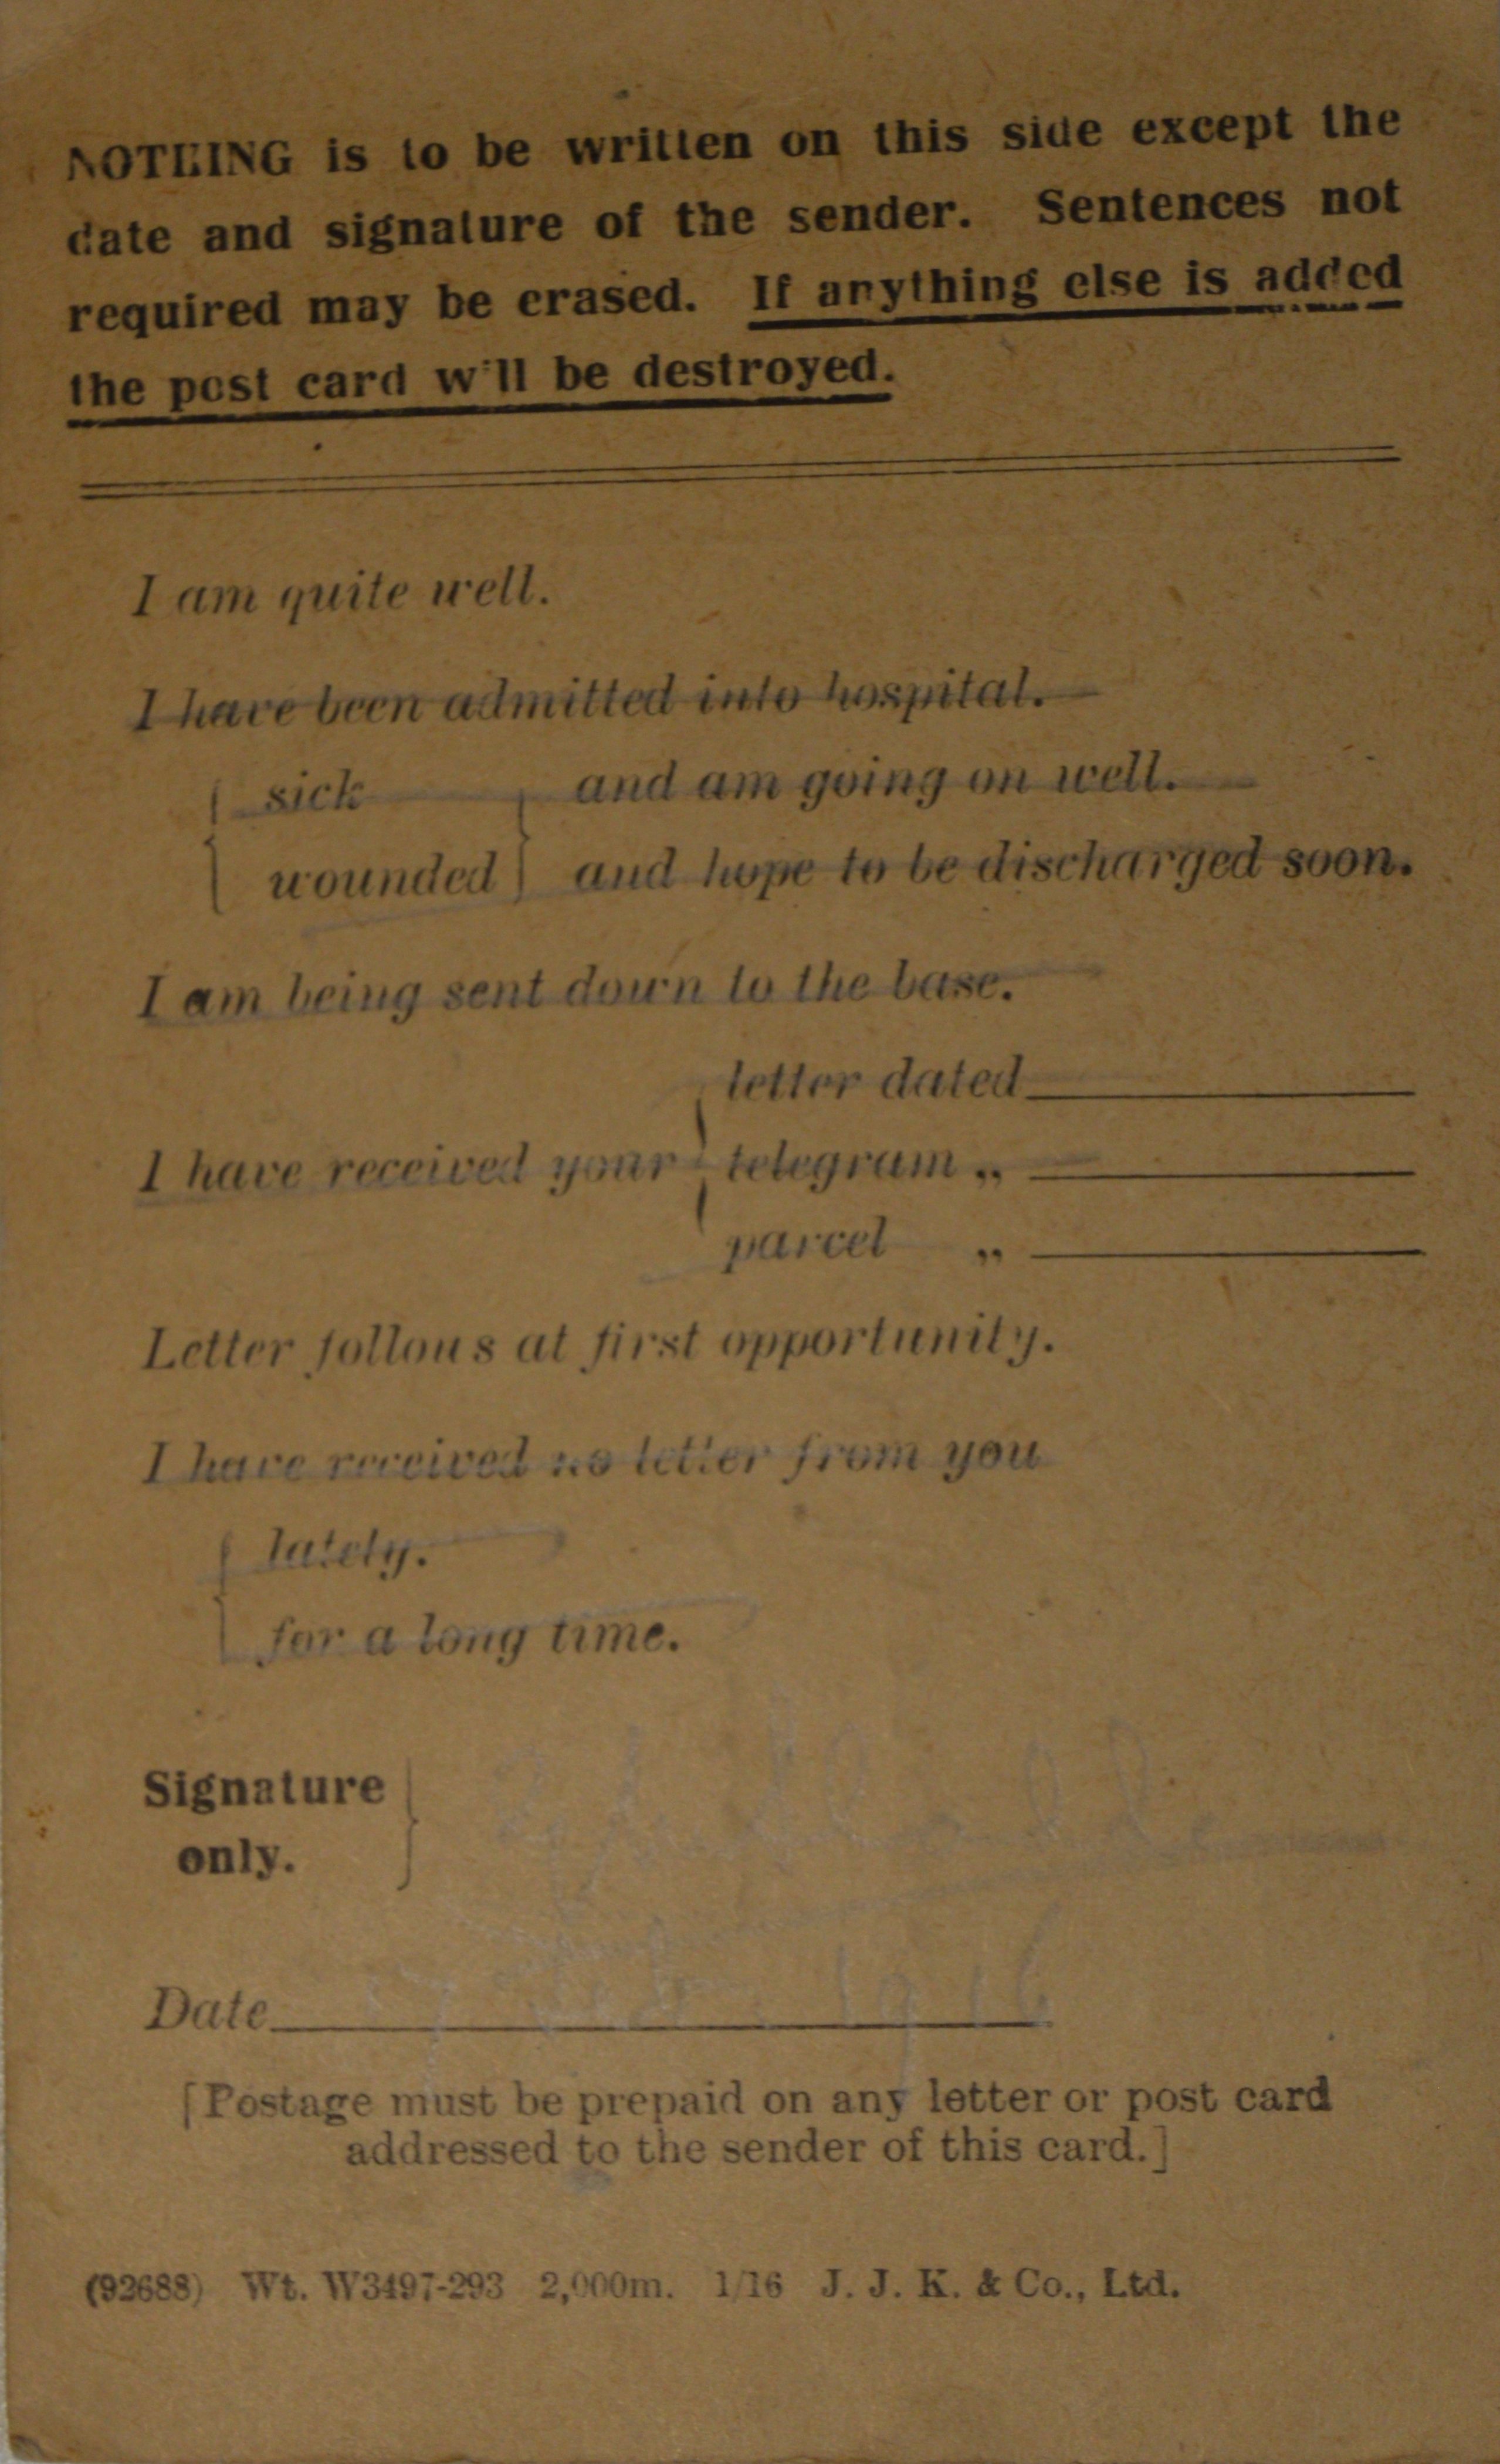 NOTHING is to be written on this side except the
date and signature of the sender. Sentences not
required may be erased. If anything else is added
the post card will be destroyed.
I am quite well.
I have been admitted into hospital.
sick and am going on well.
wounded and hope to be discharged soon.
I am being sent down to the base.
letter dated
I have received your telegram „
parcel „
Letter follows at first opportunity.
I have received no letter from you
lately.
for a long time.
Signature
only.
Date 1916
[Postage must be prepaid on any letter or post card
addressed to the sender of this card.]
(92688) Wt. W3497-293 2,000m. 1/16 J. J. K. & Co., Ltd.